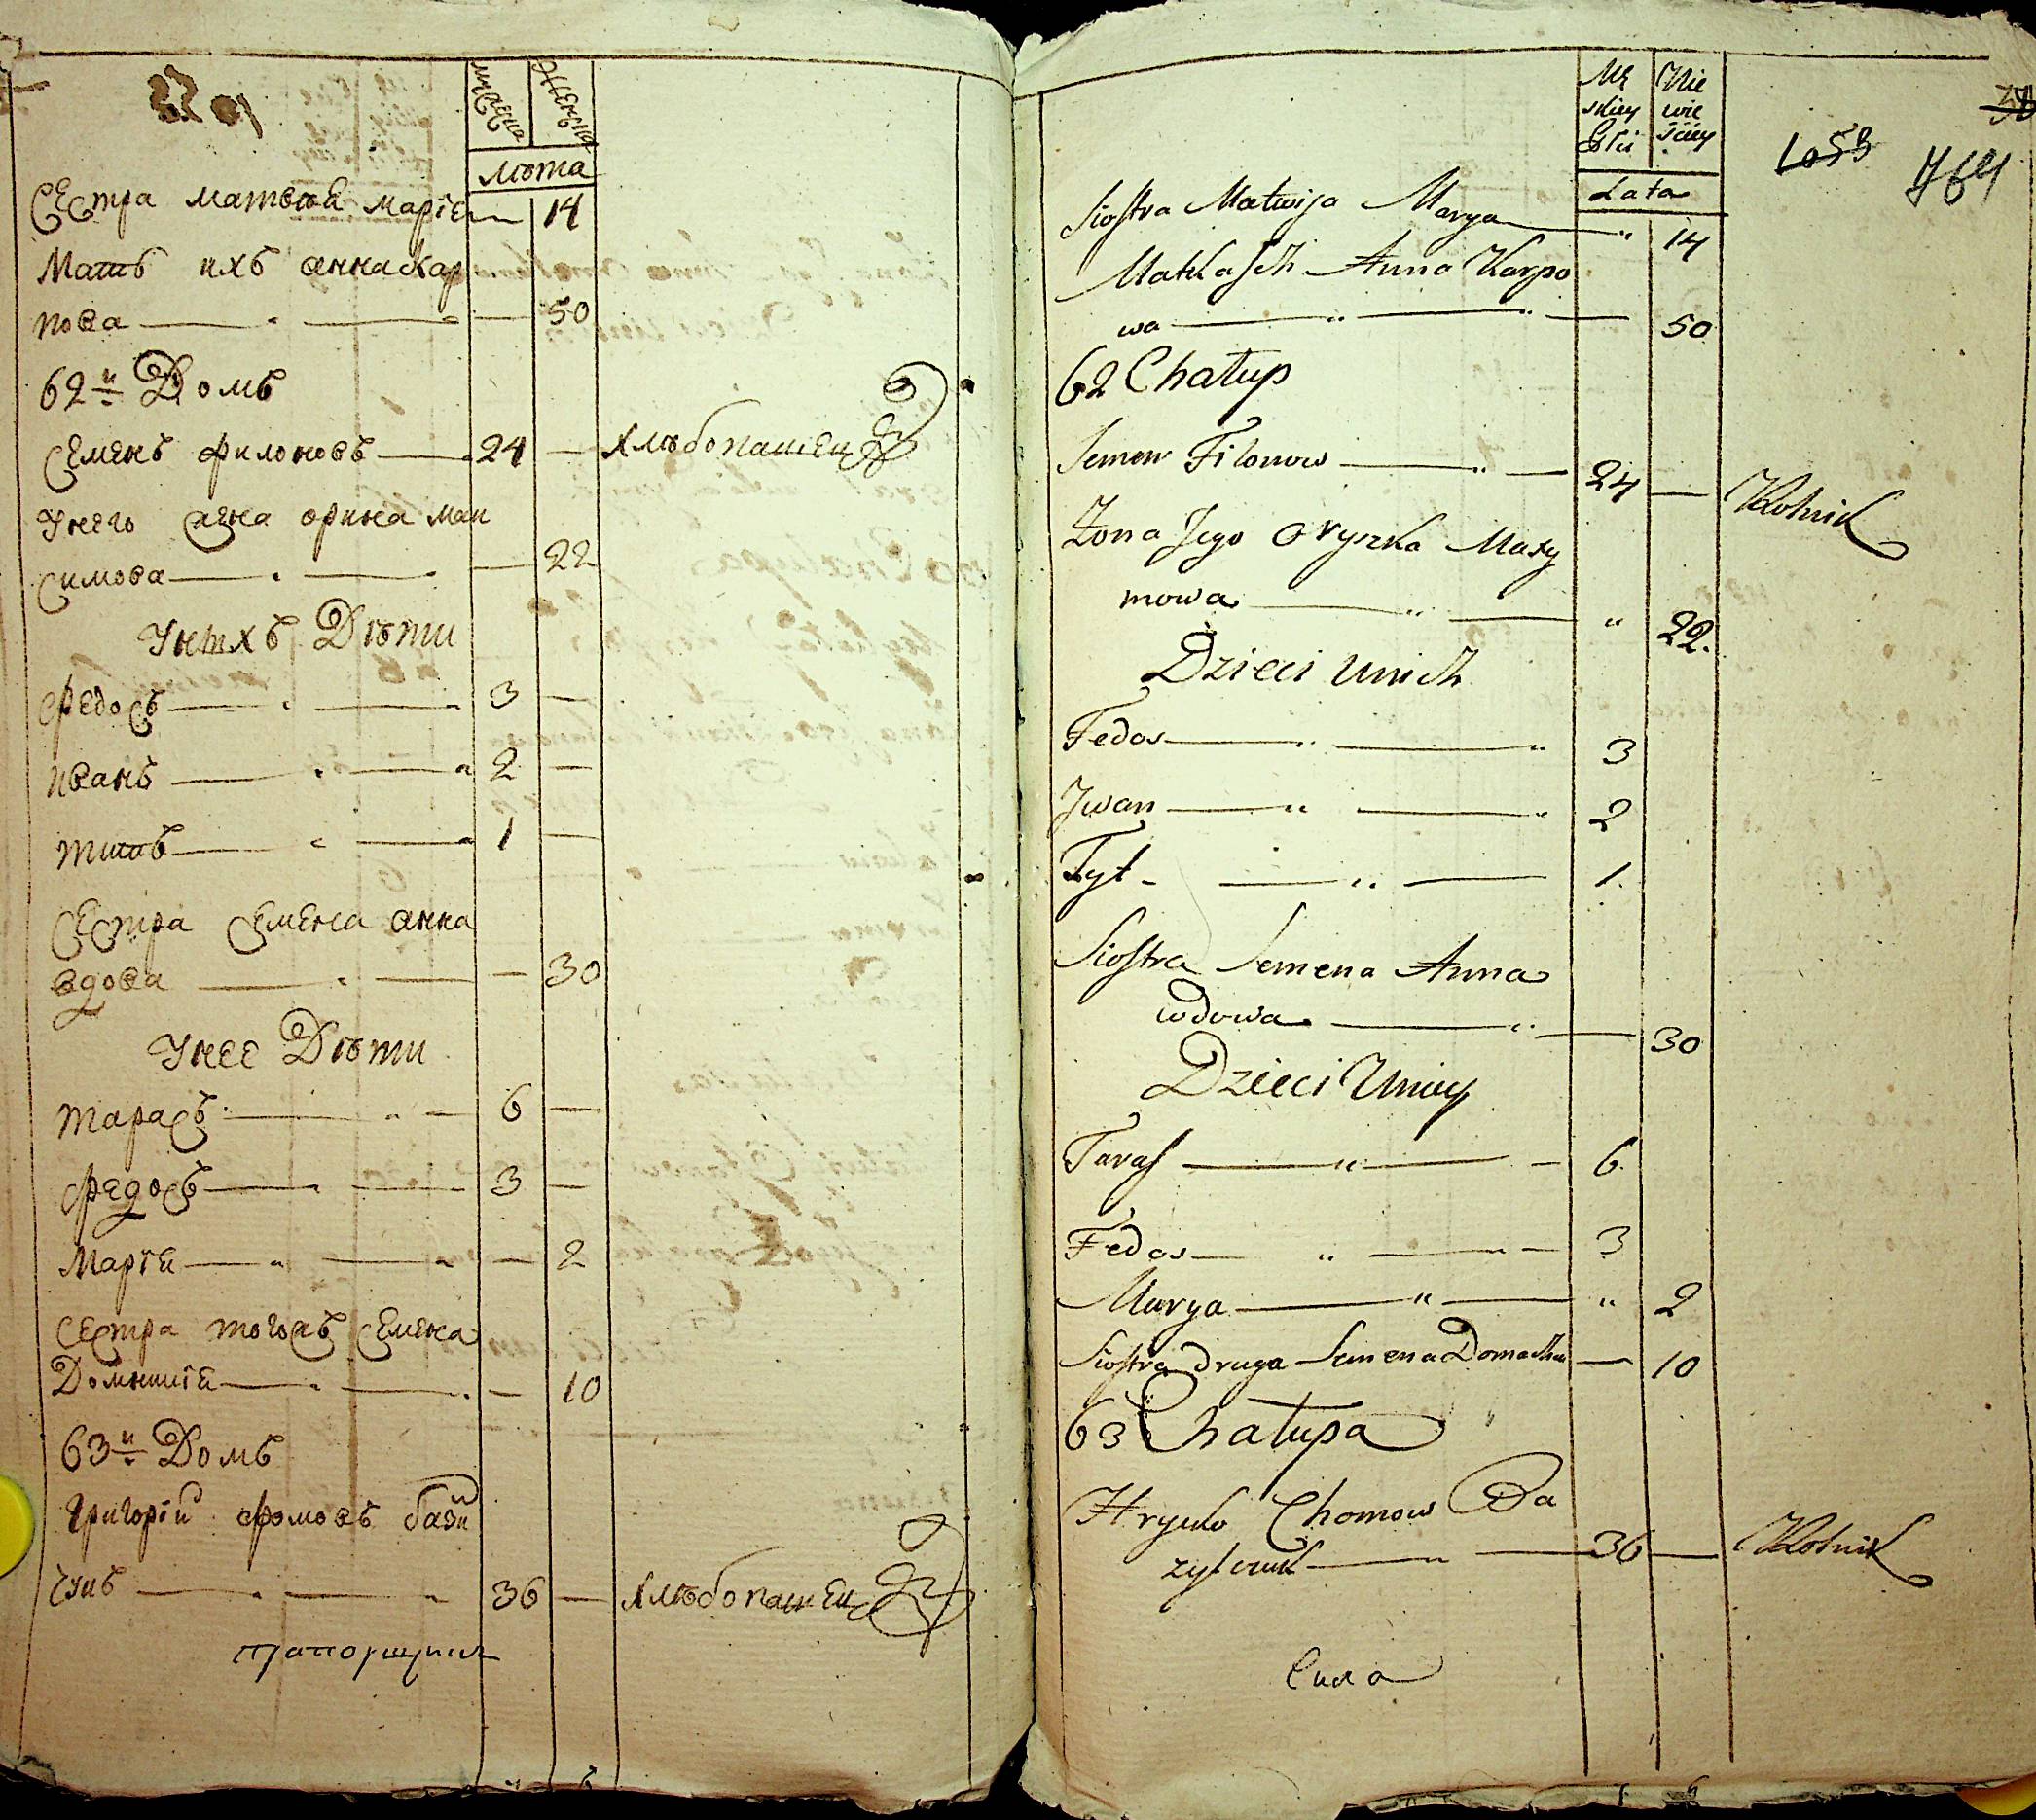 мужеска женска
лѣта
Сестра матвѣя марiя 14
Мать ихъ анна Кар
пова 50
62й Домъ
Семенъ филоновъ 24 хлѣбопашец
Унего жена орина мак
симова 22
Унихъ Дѣти
федосъ 3
иванъ 2
титъ 1
Сестра Семена анна
вдова 30
Унее Дѣти
тарасъ 6
федосъ 3
Марiя 2
Сестра тогожъ Семена
Домникiя 10
63й Домъ
григорiй фомовъ бази
чукъ 36 хлѣбопашец
прапорщикъ
Mę Nie
skiey wie
Płci sciey
1053 764
Lata
Siostra Matwija Marya " 14
Matka Jch Anna Karpo
wa 50
62 Chałup
Semen Filonow 24 Rolnik
Żona Jego Oryszka Maxy
mowa " 22.
Dzieci Unich
Fedos 3
Jwan 2
Tyt 1.
Siostra Semena Anna
wdowa 30
Dzieci Uniey
Taras 6
Fedos 3
Marya " 2
Siostra druga Semena 10
63 Chałupa
Hryćko Chomow Ba
zylczuk 36 Rolnik
Сила